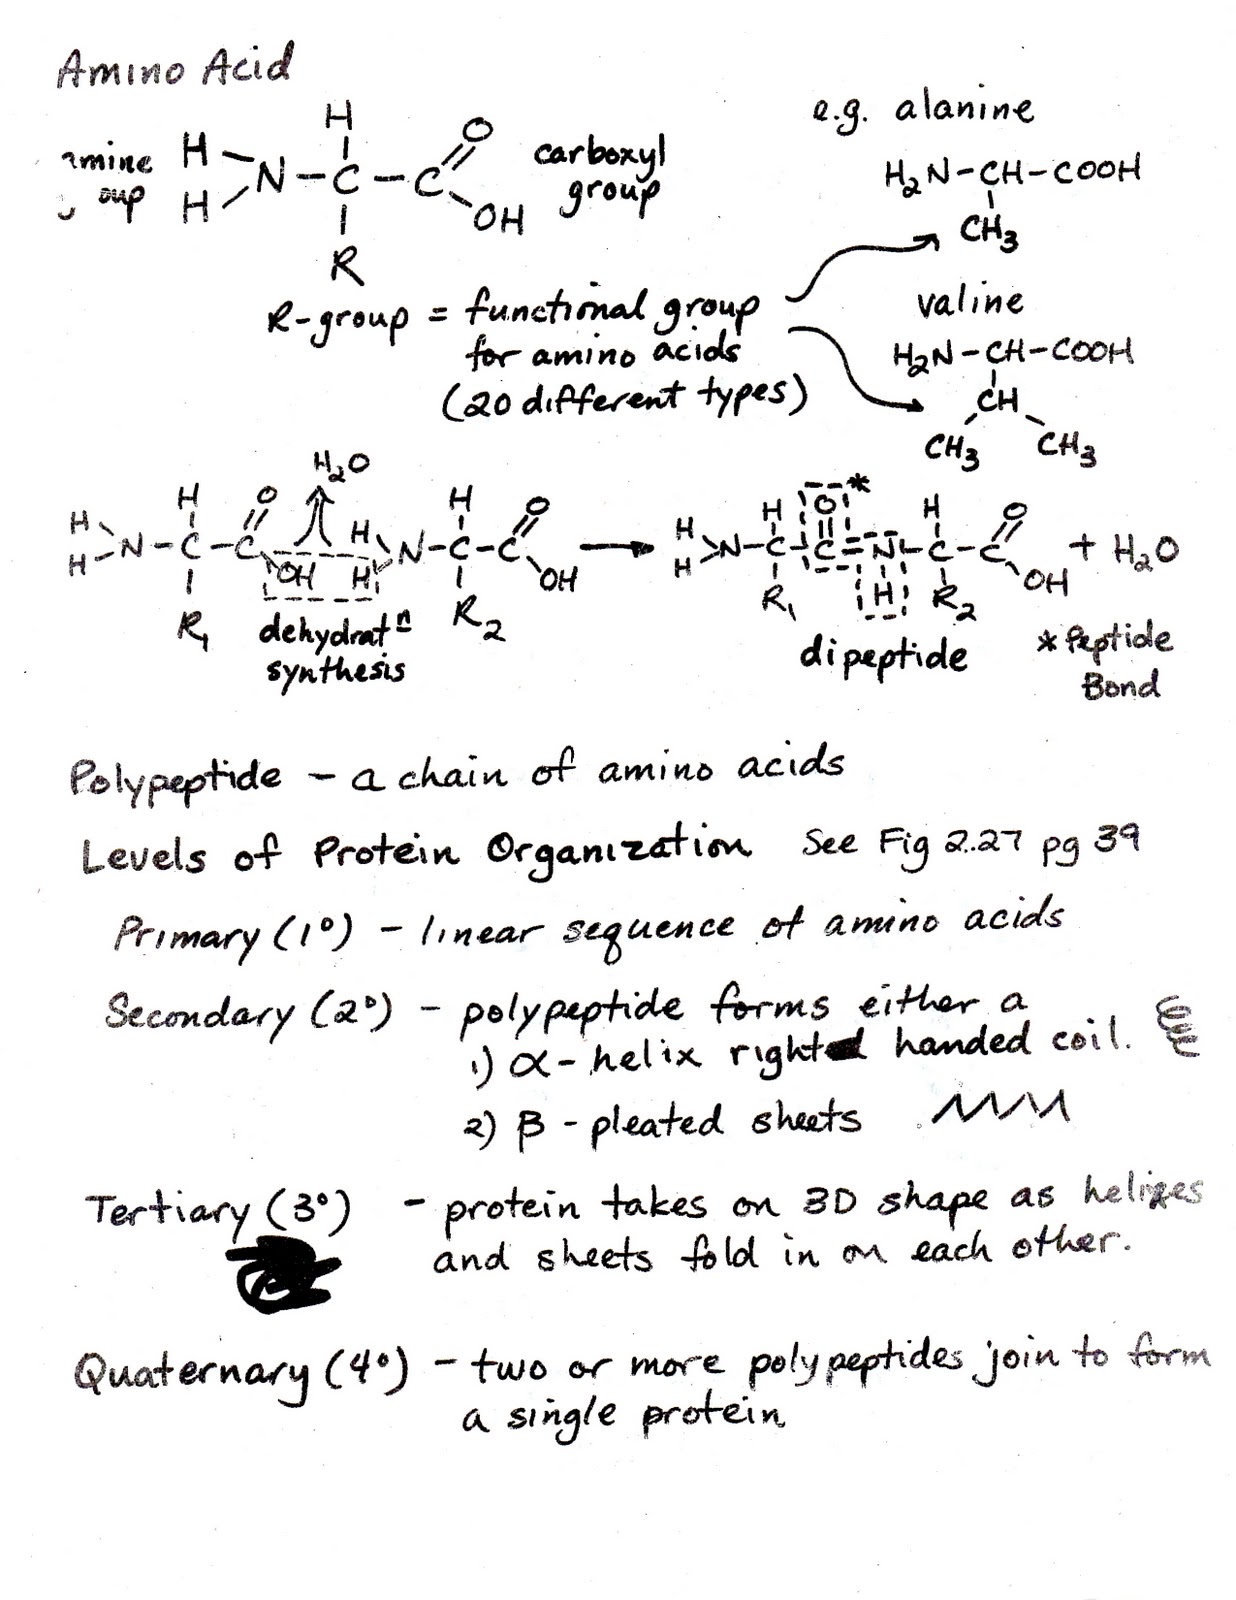 Amino Acid
e.g. alanine
H
H
N-C-C
O
OH
H
R
carboxyl
group
H₂N-CH-COOH
CH₃
R-group = functional group
for amino acids
(20 different types)
valine
H₂N-CH-COOH
CH
CH₃ CH₃
H₂O
H H O H H O H O H O
H N-C-C OH H N-C-C OH → H N-C-C-N-C-C OH + H₂O
H R₁ H R₂ H R₁ H R₂
dehydratⁿ
synthesis
dipeptide
* Peptide
Bond
Polypeptide - a chain of amino acids
Levels of Protein Organization See Fig 2.27 pg 39
Primary (1°) - linear sequence of amino acids
Secondary (2°) - polypeptide forms either a
1) α-helix right handed coil.
2) β-pleated sheets
Tertiary (3°) - protein takes on 3D shape as helixes
and sheets fold in on each other.
Quaternary (4°) - two or more polypeptides join to form
a single protein